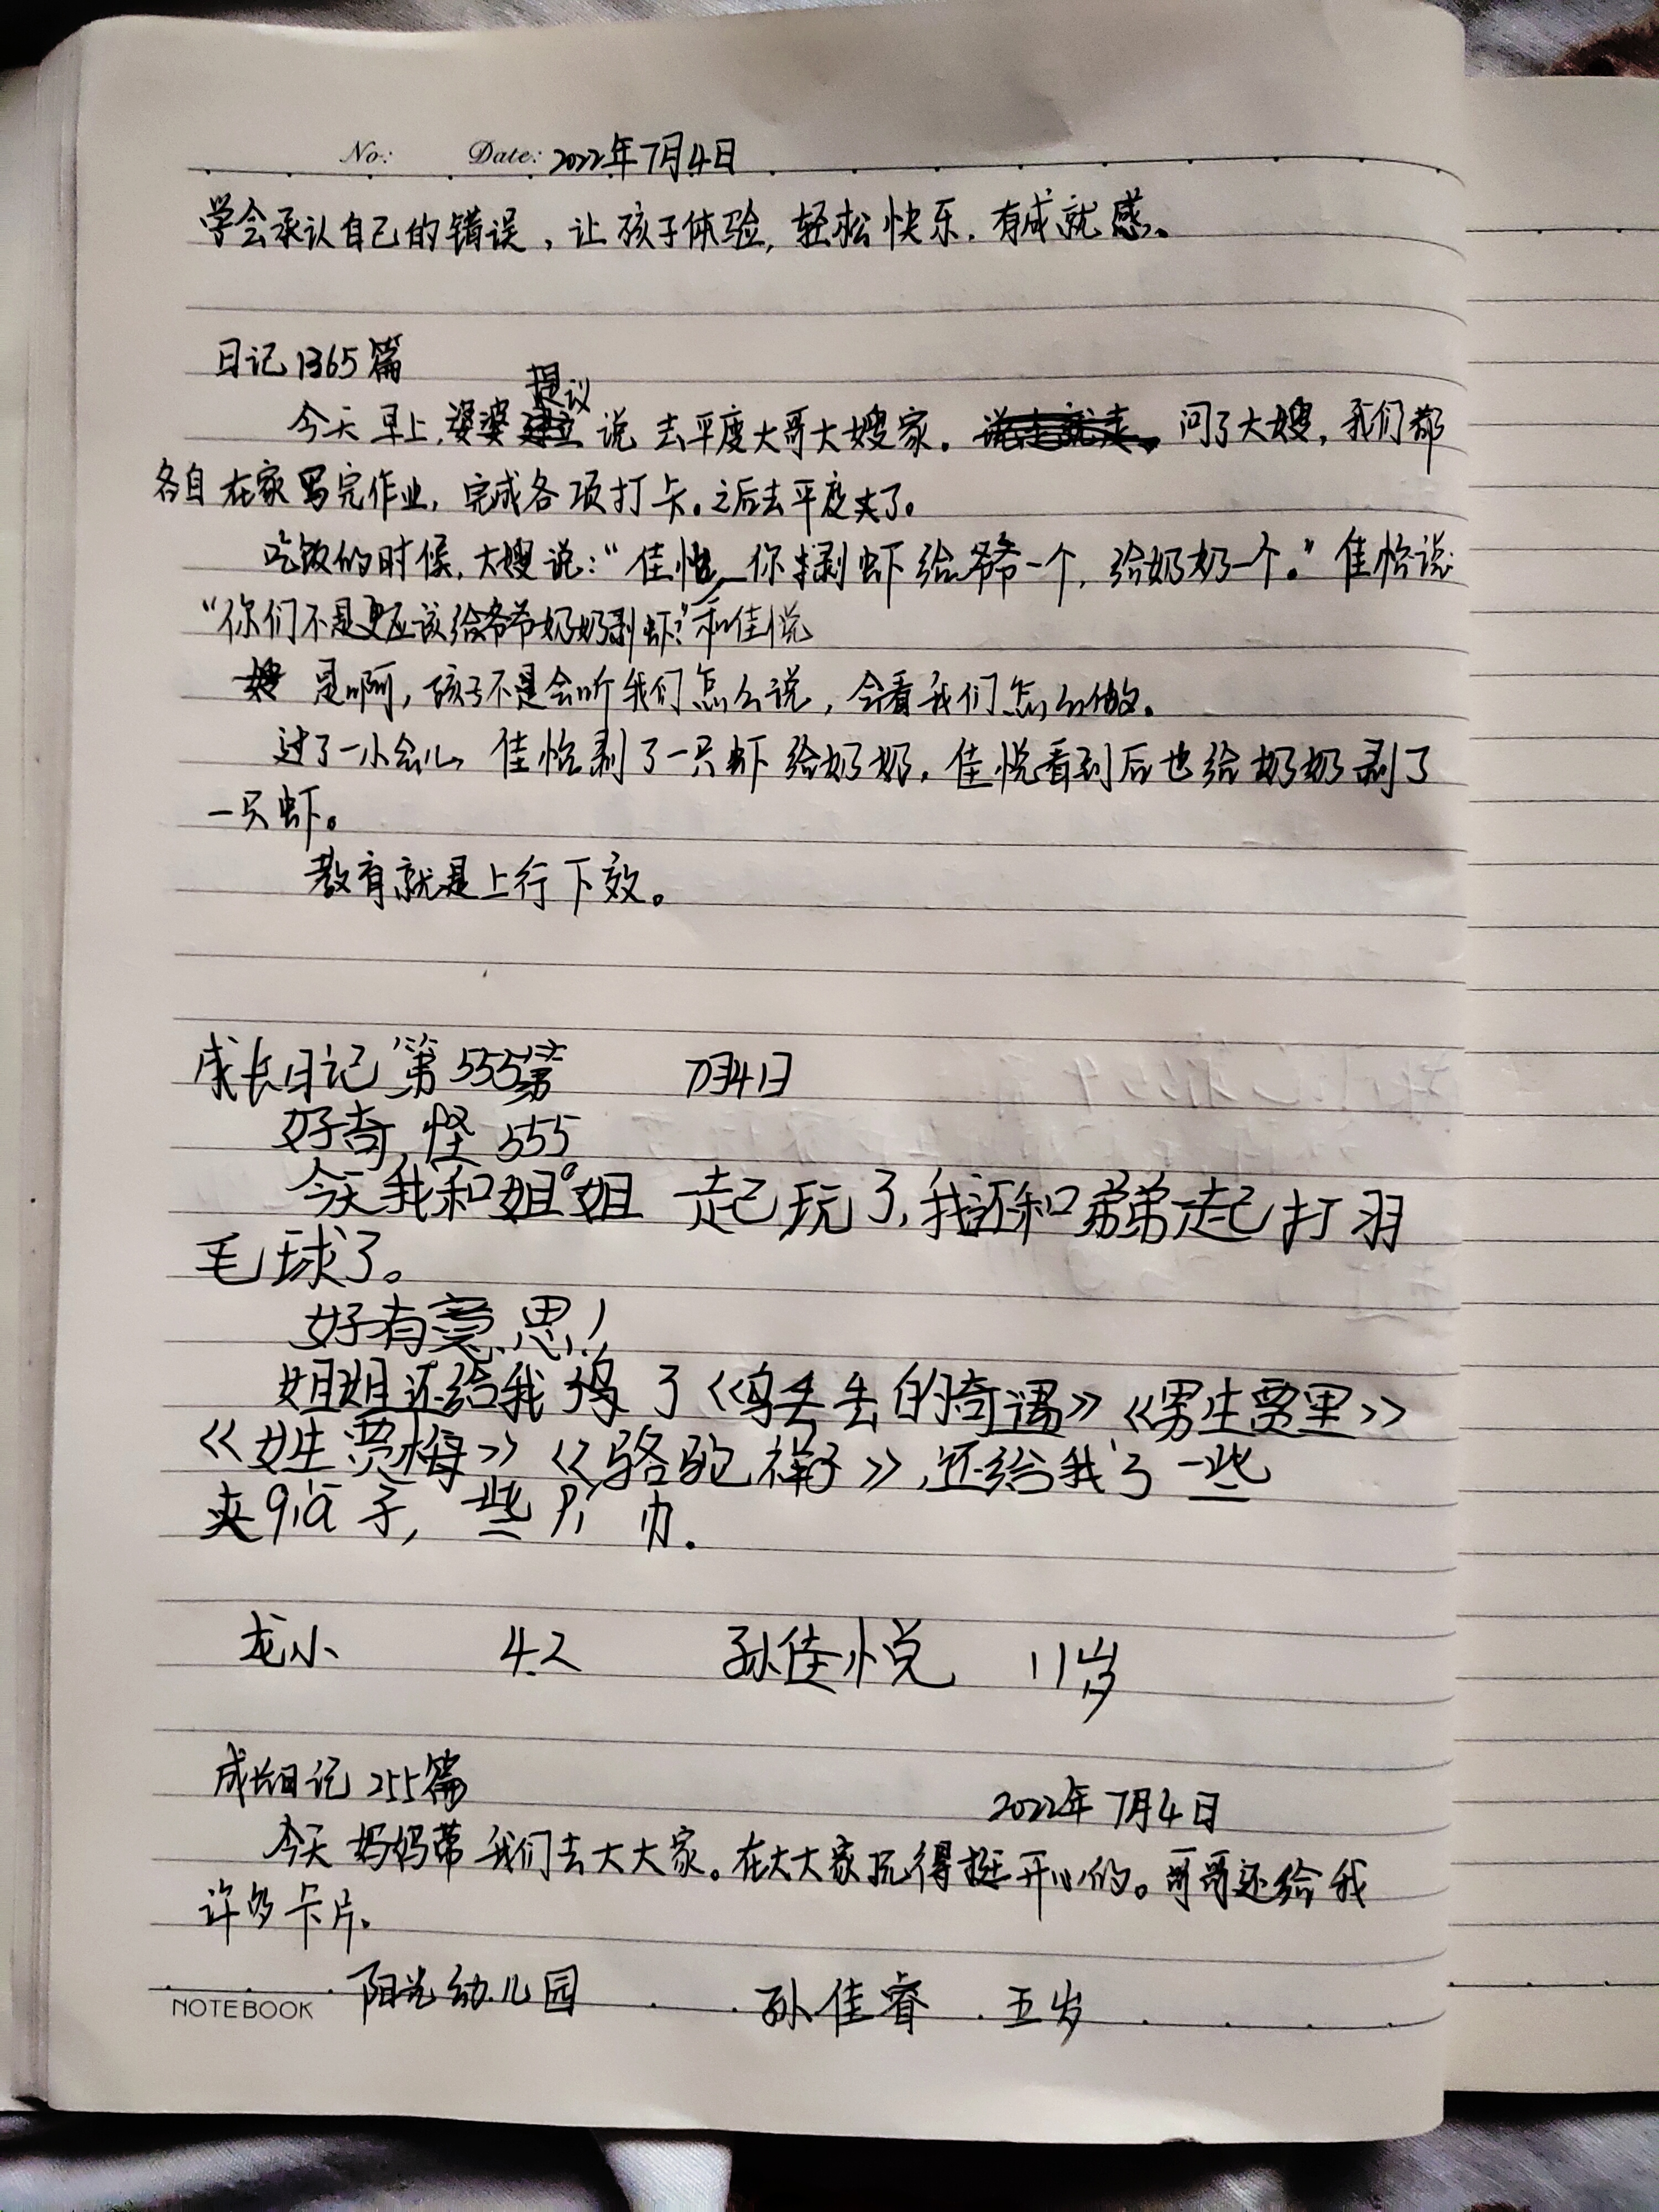 No: Date: 2022年7月4日
学会承认自己的错误，让孩子体验，轻松快乐，有成就感。
日记1365篇
提议
今天早上，婆婆说去平度大哥大嫂家。问了大嫂，我们都
各自在家写完作业，完成各项打卡。之后去平度夫了。
吃饭的时候，大嫂说：“佳怡，你剥虾给爷爷一个，给奶奶一个。”佳怡说：
“你们不是更应该给爷爷奶奶剥虾？”和佳悦
是啊，孩子不是会听我们怎么说，会看我们怎么做。
过了一小会儿，佳怡剥了一只虾给奶奶，佳悦看到后也给奶奶剥了
一只虾。
教育就是上行下效。
成长日记第555 7月4日
好奇怪555
今天我和姐姐一起玩了，我还和弟弟一起打羽
毛球了。
好有意思！
姐姐还给我了《乌丢丢的奇遇》《男生贾里》
《女生贾梅》《骆驼祥子》，还给我了一些
夹qia子，一些
龙小 4.2 孙佳悦 11岁
成长日记255篇
2022年7月4日
今天妈妈带我们去大大家。在大大家玩得挺开心的。哥哥还给我
许多卡片。
NOTEBOOK 阳光幼儿园 孙佳睿 五岁